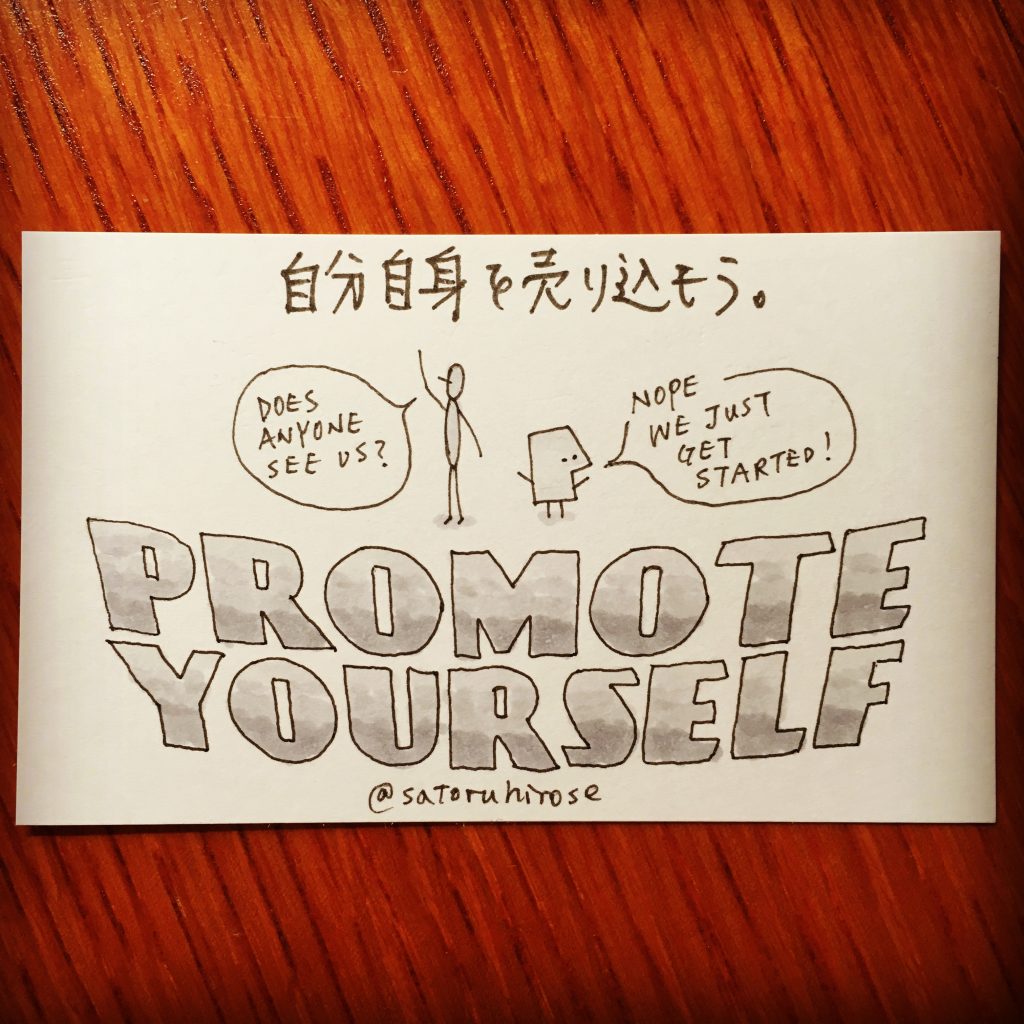 自分自身を売り込もう。
DOES
ANYONE
SEE US?
NOPE
WE JUST
GET
STARTED!
PROMOTE
YOURSELF
@satoruhirose